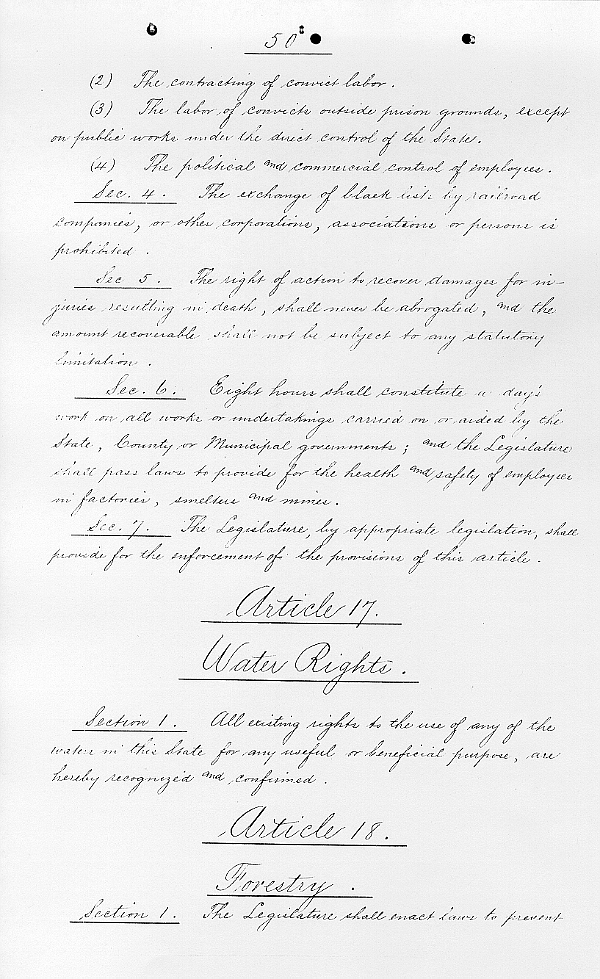 50
(2) The contracting of convict labor.
(3) The labor of convicts outside prison grounds, except
on public works under the direct control of the State.
(4) The political and commercial control of employees.
Sec. 4. The exchange of black lists by railroad
companies, or other corporations, associations or persons is
prohibited.
Sec 5. The right of action to recover damages for in-
juries resulting in death, shall never be abrogated, and the
amount recoverable shall not be subject to any statutory
limitation.
Sec. 6. Eight hours shall constitute a day's
work on all works or undertakings carried on or aided by the
State, County or Municipal governments; and the Legislature
shall pass laws to provide for the health and safety of employees
in factories, smelters and mines.
Sec. 7. The Legislature, by appropriate legislation, shall
provide for the enforcement of the provisions of this article.
Article 17.
Water Rights.
Section 1. All existing rights to the use of any of the
waters in this State for any useful or beneficial purpose, are
hereby recognized and confirmed.
Article 18.
Forestry.
Section 1. The Legislature shall enact laws to prevent